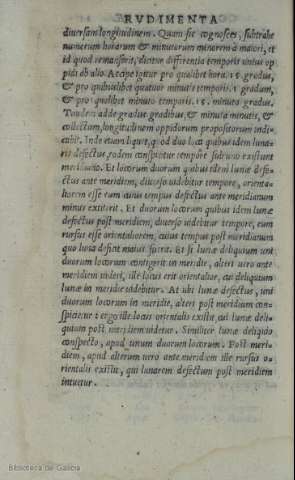 RVDIMENTA
diuersam longitudinem. Quam sic cognosces, subtrahe
numerum horarum & minutorum minorem à maiori, et
id quod remanserit, dicitur differentia temporis unius op
pidi ab alio. Accipe igitur pro qualibet hora. 15. gradus,
& pro quibuslibet quatuor minutis temporis. 1. gradum,
& pro quolibet minuto temporis. 15. minuta gradus.
Tandem adde gradus gradibus, & minuta minutis, &
collectum, longitudinem oppidorum propositorum indi-
cabit. Inde etiam liquet, quòd duo loca quibus idem luna-
ris defectus, eodem conspicitur tempore sub uno existunt
meridiano. Et locorum duorum quibus idem lunæ defe-
ctus ante meridiem, diuerso uidebitur tempore, orienta-
liorem esse eum cuius tempus defectus ante meridianum
minus extiterit. Et duorum locorum quibus idem lunæ
defectus post meridiem, diuerso uidebitur tempore, eum
rursus esse orientaliorem, cuius tempus post meridianum
quo luna deficit maius fuerit. Et si lunæ deliquium uni
duorum locorum contigerit in meridie, alteri uero ante
meridiem uideri, ille locus erit orientalior, cui deliquium
lunæ in meridie uidebitur. At ubi lunæ defectus, uni
duorum locorum in meridie, alteri post meridiem con-
spicietur: ergo ille locus orientalis existit, cui lunæ deli-
quium post meridiem uidetur. Similiter lunæ deliquio
conspecto, apud unum duorum locorum. Post meri-
diem, apud alterum uero ante meridiem ille rursus o-
rientalis existit, qui lunarem defectum post meridiem
intuetur.
Biblioteca de Galicia